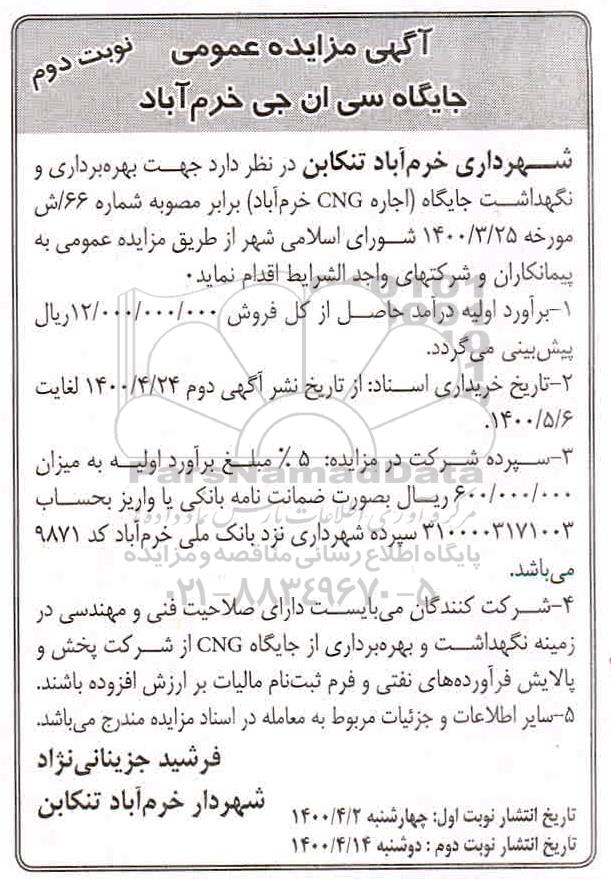 آگهی مزایده عمومی
نوبت دوم
جایگاه سی ان جی خرم‌آباد
شهرداری خرم‌آباد تنکابن در نظر دارد جهت بهره‌برداری و
نگهداشت جایگاه (اجاره CNG خرم‌آباد) برابر مصوبه شماره ۶۶/ش
مورخه ۱۴۰۰/۳/۲۵ شورای اسلامی شهر از طریق مزایده عمومی به
پیمانکاران و شرکتهای واجد الشرایط اقدام نماید.
۱-برآورد اولیه درآمد حاصل از کل فروش ۱۲/۰۰۰/۰۰۰/۰۰۰ریال
پیش‌بینی می‌گردد.
۲-تاریخ خریداری اسناد: از تاریخ نشر آگهی دوم ۱۴۰۰/۴/۲۴ لغایت
۱۴۰۰/۵/۶.
۳-سپرده شرکت در مزایده: ۵ ٪ مبلغ برآورد اولیه به میزان
۶۰۰/۰۰۰/۰۰۰ ریال بصورت ضمانت نامه بانکی یا واریز بحساب
۳۱۰۰۰۰۳۱۷۱۰۰۳ سپرده شهرداری نزد بانک ملی خرم‌آباد کد ۹۸۷۱
می‌باشد.
۴-شرکت کنندگان می‌بایست دارای صلاحیت فنی و مهندسی در
زمینه نگهداشت و بهره‌برداری از جایگاه CNG از شرکت پخش و
پالایش فرآورده‌های نفتی و فرم ثبت‌نام مالیات بر ارزش افزوده باشند.
۵-سایر اطلاعات و جزئیات مربوط به معامله در اسناد مزایده مندرج می‌باشد.
فرشید جزینانی‌نژاد
شهردار خرم‌آباد تنکابن
تاریخ انتشار نوبت اول: چهارشنبه ۱۴۰۰/۴/۲
تاریخ انتشار نوبت دوم : دوشنبه ۱۴۰۰/۴/۱۴
ParsNamadData
پایگاه اطلاع رسانی مناقصه و مزایده
۰۲۱-۸۸۳۴۹۶۷۰-۵